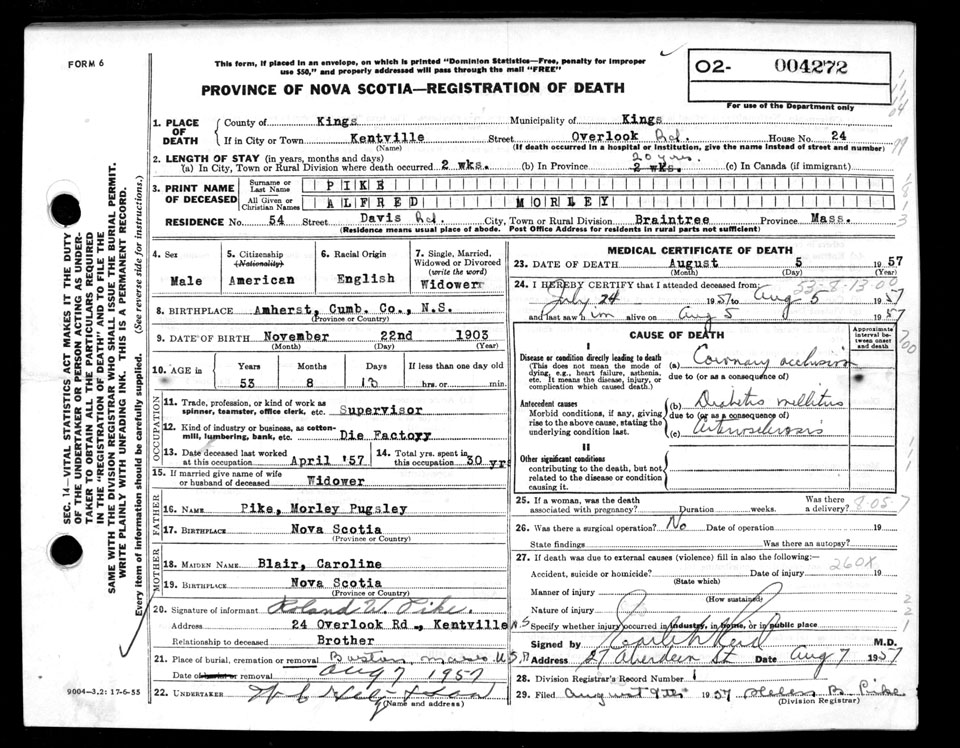 FORM 6
This form, if placed in an envelope, on which is printed "Dominion Statistics—Free, penalty for improper
use $50," and properly addressed will pass through the mail "FREE"
02- 004272
For use of the Department only
PROVINCE OF NOVA SCOTIA—REGISTRATION OF DEATH
1. PLACE OF DEATH
County of Kings Municipality of Kings
If in City or Town Kentville Street Overlook Rd. House No. 24
(Name) (If death occurred in a hospital or institution, give the name instead of street and number)
2. LENGTH OF STAY (in years, months and days)
20 yrs.
(a) In City, Town or Rural Division where death occurred 2 wks. (b) In Province 2 wks. (c) In Canada (if immigrant)
3. PRINT NAME OF DECEASED
Surname or Last Name PIKE
All Given or Christian Names ALFRED MORLEY
RESIDENCE No. 54 Street Davis Rd. City, Town or Rural Division Braintree Province Mass.
(Residence means usual place of abode. Post Office Address for residents in rural parts not sufficient)
4. Sex
Male
5. Citizenship
(Nationality)
American
6. Racial Origin
English
7. Single, Married, Widowed or Divorced
(write the word)
Widower
8. BIRTHPLACE Amherst, Cumb. Co., N.S.
(Province or Country)
9. DATE OF BIRTH November 22nd 1903
(Month) (Day) (Year)
10. AGE in
Years Months Days If less than one day old
53 8 13 hrs. or min.
OCCUPATION
11. Trade, profession, or kind of work as
spinner, teamster, office clerk, etc. Supervisor
12. Kind of industry or business, as cotton-
mill, lumbering, bank, etc. Die Factory
13. Date deceased last worked
at this occupation April '57
14. Total yrs. spent in
this occupation 30 yrs
15. If married give name of wife
or husband of deceased Widower
FATHER
16. NAME Pike, Morley Pugsley
17. BIRTHPLACE Nova Scotia
(Province or Country)
MOTHER
18. MAIDEN NAME Blair, Caroline
19. BIRTHPLACE Nova Scotia
(Province or Country)
20. Signature of informant Roland W. Pike.
Address 24 Overlook Rd., Kentville N.S
Relationship to deceased Brother
21. Place of burial, cremation or removal Boston, Mass U S A
Date of burial or removal Aug 7 1957
22. UNDERTAKER
(Name and address)
MEDICAL CERTIFICATE OF DEATH
23. DATE OF DEATH August 5 1957
(Month) (Day) (Year)
53-8-13 00
24. I HEREBY CERTIFY that I attended deceased from:
July 24 1957 to Aug 5 1957
and last saw him alive on Aug 5 1957
CAUSE OF DEATH
Approximate interval between onset and death
I
Disease or condition directly leading to death
(This does not mean the mode of
dying, e.g., heart failure, asthenia,
etc. It means the disease, injury, or
complication which caused death.)
(a) Coronary occlusion
due to (or as a consequence of)
Antecedent causes
Morbid conditions, if any, giving
rise to the above cause, stating the
underlying condition last.
(b) Diabetis mellitus
due to (or as a consequence of)
(c) Arteriosclerosis
II
Other significant conditions
contributing to the death, but not
related to the disease or condition
causing it.
25. If a woman, was the death
associated with pregnancy? Duration weeks. Was there
a delivery?
26. Was there a surgical operation? No Date of operation 19
State findings Was there an autopsy?
27. If death was due to external causes (violence) fill in also the following:
260X
Accident, suicide or homicide? Date of injury 19
(State which)
Manner of injury
(How sustained)
Nature of injury
Specify whether injury occurred in industry, in home, or in public place
Signed by M.D.
Address 27 Aberdeen St Date Aug 7 1957
28. Division Registrar's Record Number 1
29. Filed August 1957 Helen B. Pike
(Division Registrar)
SEC. 14—VITAL STATISTICS ACT MAKES IT THE DUTY
OF THE UNDERTAKER OR PERSON ACTING AS UNDER-
TAKER TO OBTAIN ALL THE PARTICULARS REQUIRED
IN THE "REGISTRATION OF DEATH" AND TO FILE THE
SAME WITH THE DIVISION REGISTRAR WHO SHALL ISSUE THE BURIAL PERMIT.
WRITE PLAINLY WITH UNFADING INK. THIS IS A PERMANENT RECORD.
Every item of information should be carefully supplied. (See reverse side for instructions.)
9004-3.2: 17-6-55